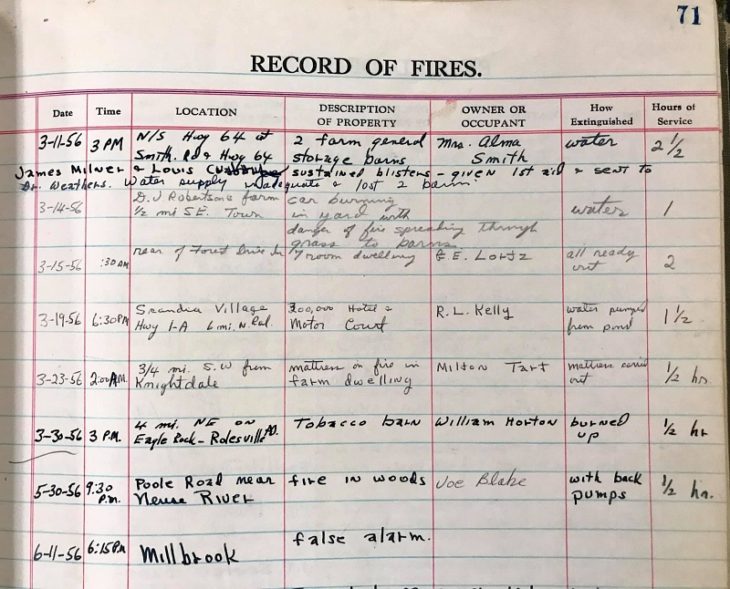 71
RECORD OF FIRES.
Date Time LOCATION DESCRIPTION OF PROPERTY OWNER OR OCCUPANT How Extinguished Hours of Service
3-11-56 3 PM N/S Hwy 64 at 2 farm general Mrs. Alma water 2 1/2
Smith. Rd & Hwy 64 storage barns Smith
James Milner & Louis sustained blisters - given 1st aid & sent to
Dr. Weathers. Water supply inadequate & lost 2 barns.
3-14-56 D. J Robertson's farm car burning water 1
1/2 mi SE. Town in yard with
danger of fire spreading through
grass to barns.
3-15-56 :30 AM rear of Forest 17 room dwelling G. E. Lortz all ready 2
out
3-19-56 6:30PM Scandia Village 300,000 Hotel & R. L. Kelly water pumped 1 1/2
Hwy 1-A 6 mi. N. Ral. Motor Court from pond
3-23-56 2:00 A.M. 3/4 mi. S.W from mattress on fire in Milton Tart mattress carried 1/2 hr.
Knightdale farm dwelling out
3-30-56 3 P.M. 4 mi. NE on Tobacco barn William Horton burned 1/2 hr
Eagle Rock - Rolesville RD. up
5-30-56 9:30 P.m. Poole Road near fire in woods Joe Blake with back 1/2 hr.
Neuse River pumps
6-11-56 6:15PM Millbrook false alarm.